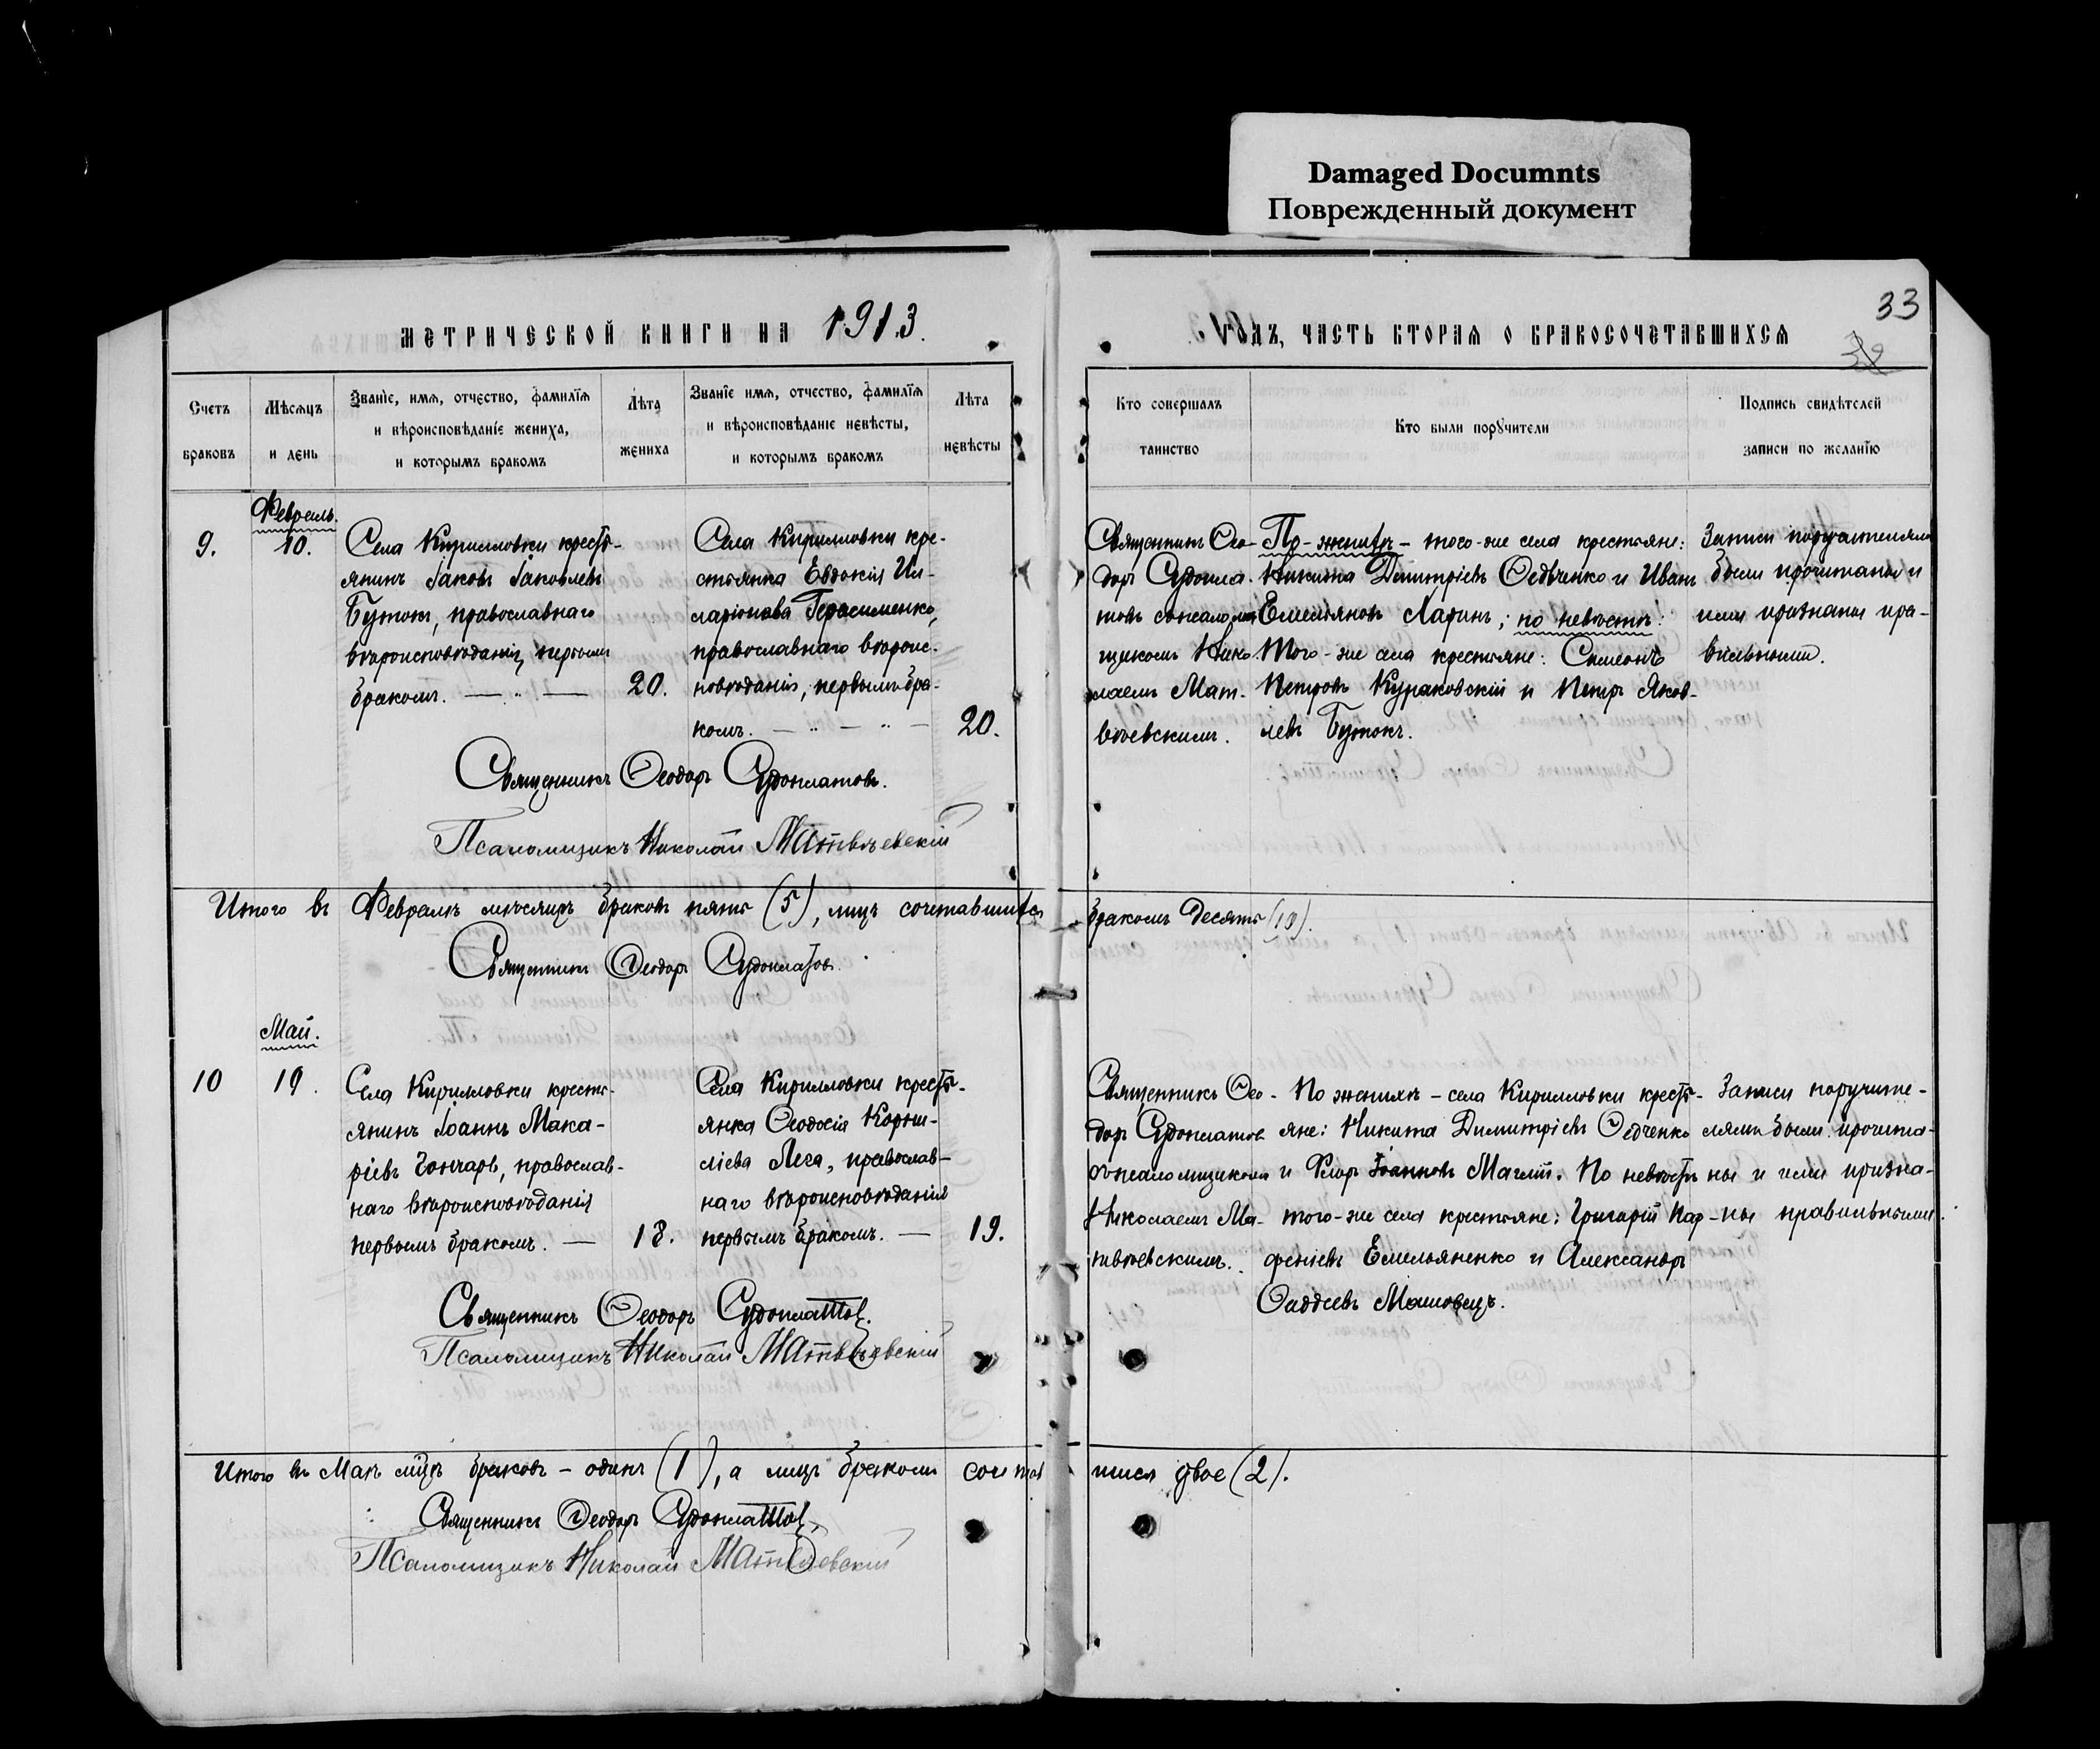 Damaged Documnts
Поврежденный документ
33
32
МЕТРИЧЕСКОЙ КНИГИ НА 1913.
ГОДЪ, ЧАСТЬ ВТОРАЯ О БРАКОСОЧЕТАВШИХСЯ
Счетъ браковъ
Мѣсяцъ и день
Званіе, имя, отчество, фамилія и вѣроисповѣданіе жениха, и которымъ бракомъ
Лѣта жениха
Званіе имя, отчество, фамилія и вѣроисповѣданіе невѣсты, и которымъ бракомъ
Лѣта невѣсты
Кто совершалъ таинство
Кто были поручители
Подпись свидѣтелей записи по желанію
Февраль.
9.
10.
Села Кирилловки кресть-
янинъ Іаковъ Іаковлевъ
Бутокъ, православнаго
вѣроисповѣданія, первымъ
бракомъ.
20.
Села Кирилловки кре-
стьянка Евдокія Ил-
ларіонова Герасименко,
православнаго вѣроис-
повѣданія, первымъ бра-
комъ.
20.
Священникъ Ѳео-
доръ Судопла-
товъ съ псалом-
щикомъ Нико-
лаемъ Мат-
вѣевскимъ.
По-женихѣ - того-же села крестьяне:
Никита Димитріевъ Ѳедченко и Иванъ
Емельяновъ Ларинъ; по невѣстѣ:
того-же села крестьяне: Симеонъ
Петровъ Кураковскій и Петръ Яков-
левъ Бутокъ.
Записи поручителямъ
были прочитаны и
ими признаны пра-
вильными.
Священникъ Ѳеодоръ Судоплатовъ.
Псаломщикъ Николай Матвѣевскій
Итого въ Февралѣ мѣсяцѣ браковъ пять (5), лицъ сочетавшихся
бракомъ десять (10).
Священникъ Ѳеодоръ Судоплатовъ.
Май.
10
19.
Села Кирилловки кресть-
янинъ Іоаннъ Мака-
ріевъ Гончаръ, православ-
наго вѣроисповѣданія
первымъ бракомъ.
18.
Села Кирилловки кресть-
янка Ѳеодосія Корни-
ліева Лега, православ-
наго вѣроисповѣданія
первымъ бракомъ.
19.
Священникъ Ѳео-
доръ Судоплатовъ
съ псаломщикомъ
Николаемъ Ма-
твѣевскимъ.
По женихѣ - села Кирилловки кресть-
яне: Никита Димитріевъ Ѳедченко
и Флоръ Іоанновъ По невѣстѣ
того-же села крестьяне: Григорій Пар-
феніевъ Емельяненко и Александръ
Ѳаддеевъ
Записи поручите-
лямъ были прочита-
ны и ими призна-
ны правильными.
Священникъ Ѳеодоръ Судоплатов.
Псаломщикъ Николай Матвѣевскій
Итого въ Маѣ мцѣ браковъ - одинъ (1), а лицъ бракомъ сочетав
шихся двое (2).
Священникъ Ѳеодоръ Судоплатов.
Псаломщикъ Николай Матвѣевскій